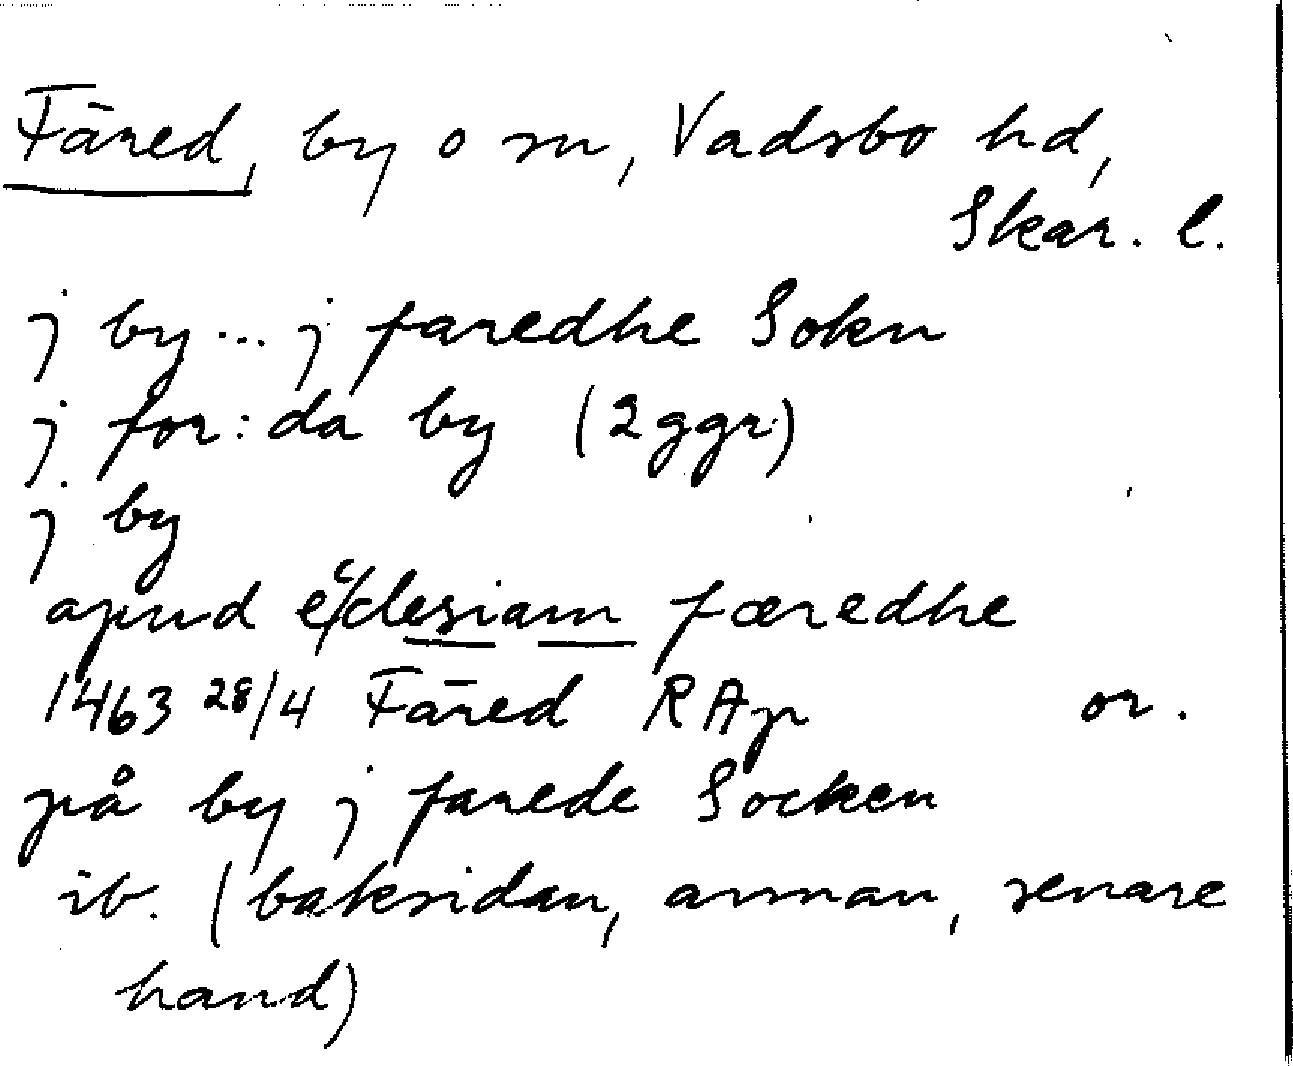 Färed, by o sn, Vadsbo hd,
Skar. l.
j by... j faredhe Sokn
j for:da by (2 ggr)
j by
apud ecclesiam færedhe
1463 28/4 Färed RAp or.
på by j farede Socken
ib. (baksidan, annan, senare
hand)